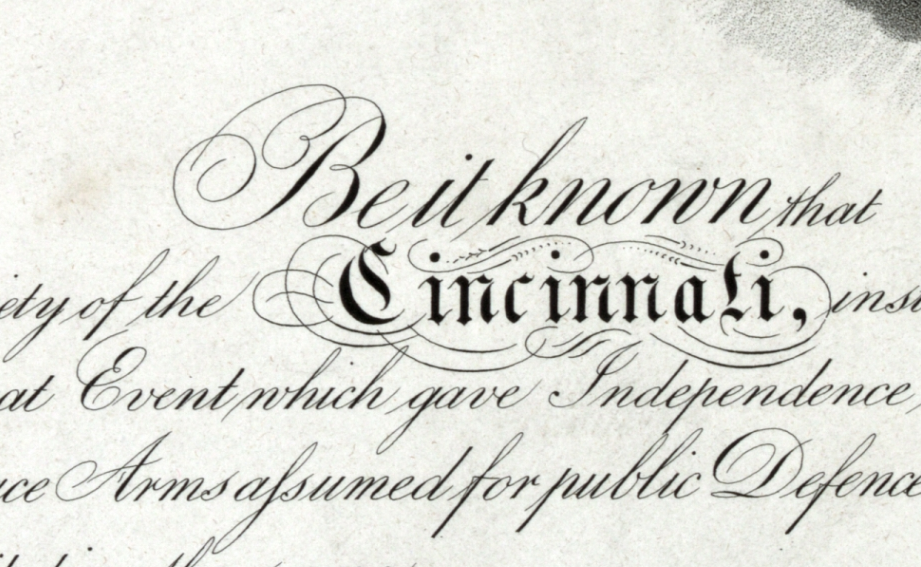 Be it known that
iety of the Cincinnati, inst
at Event which gave Independence,
uce Arms aſsumed for public Defence